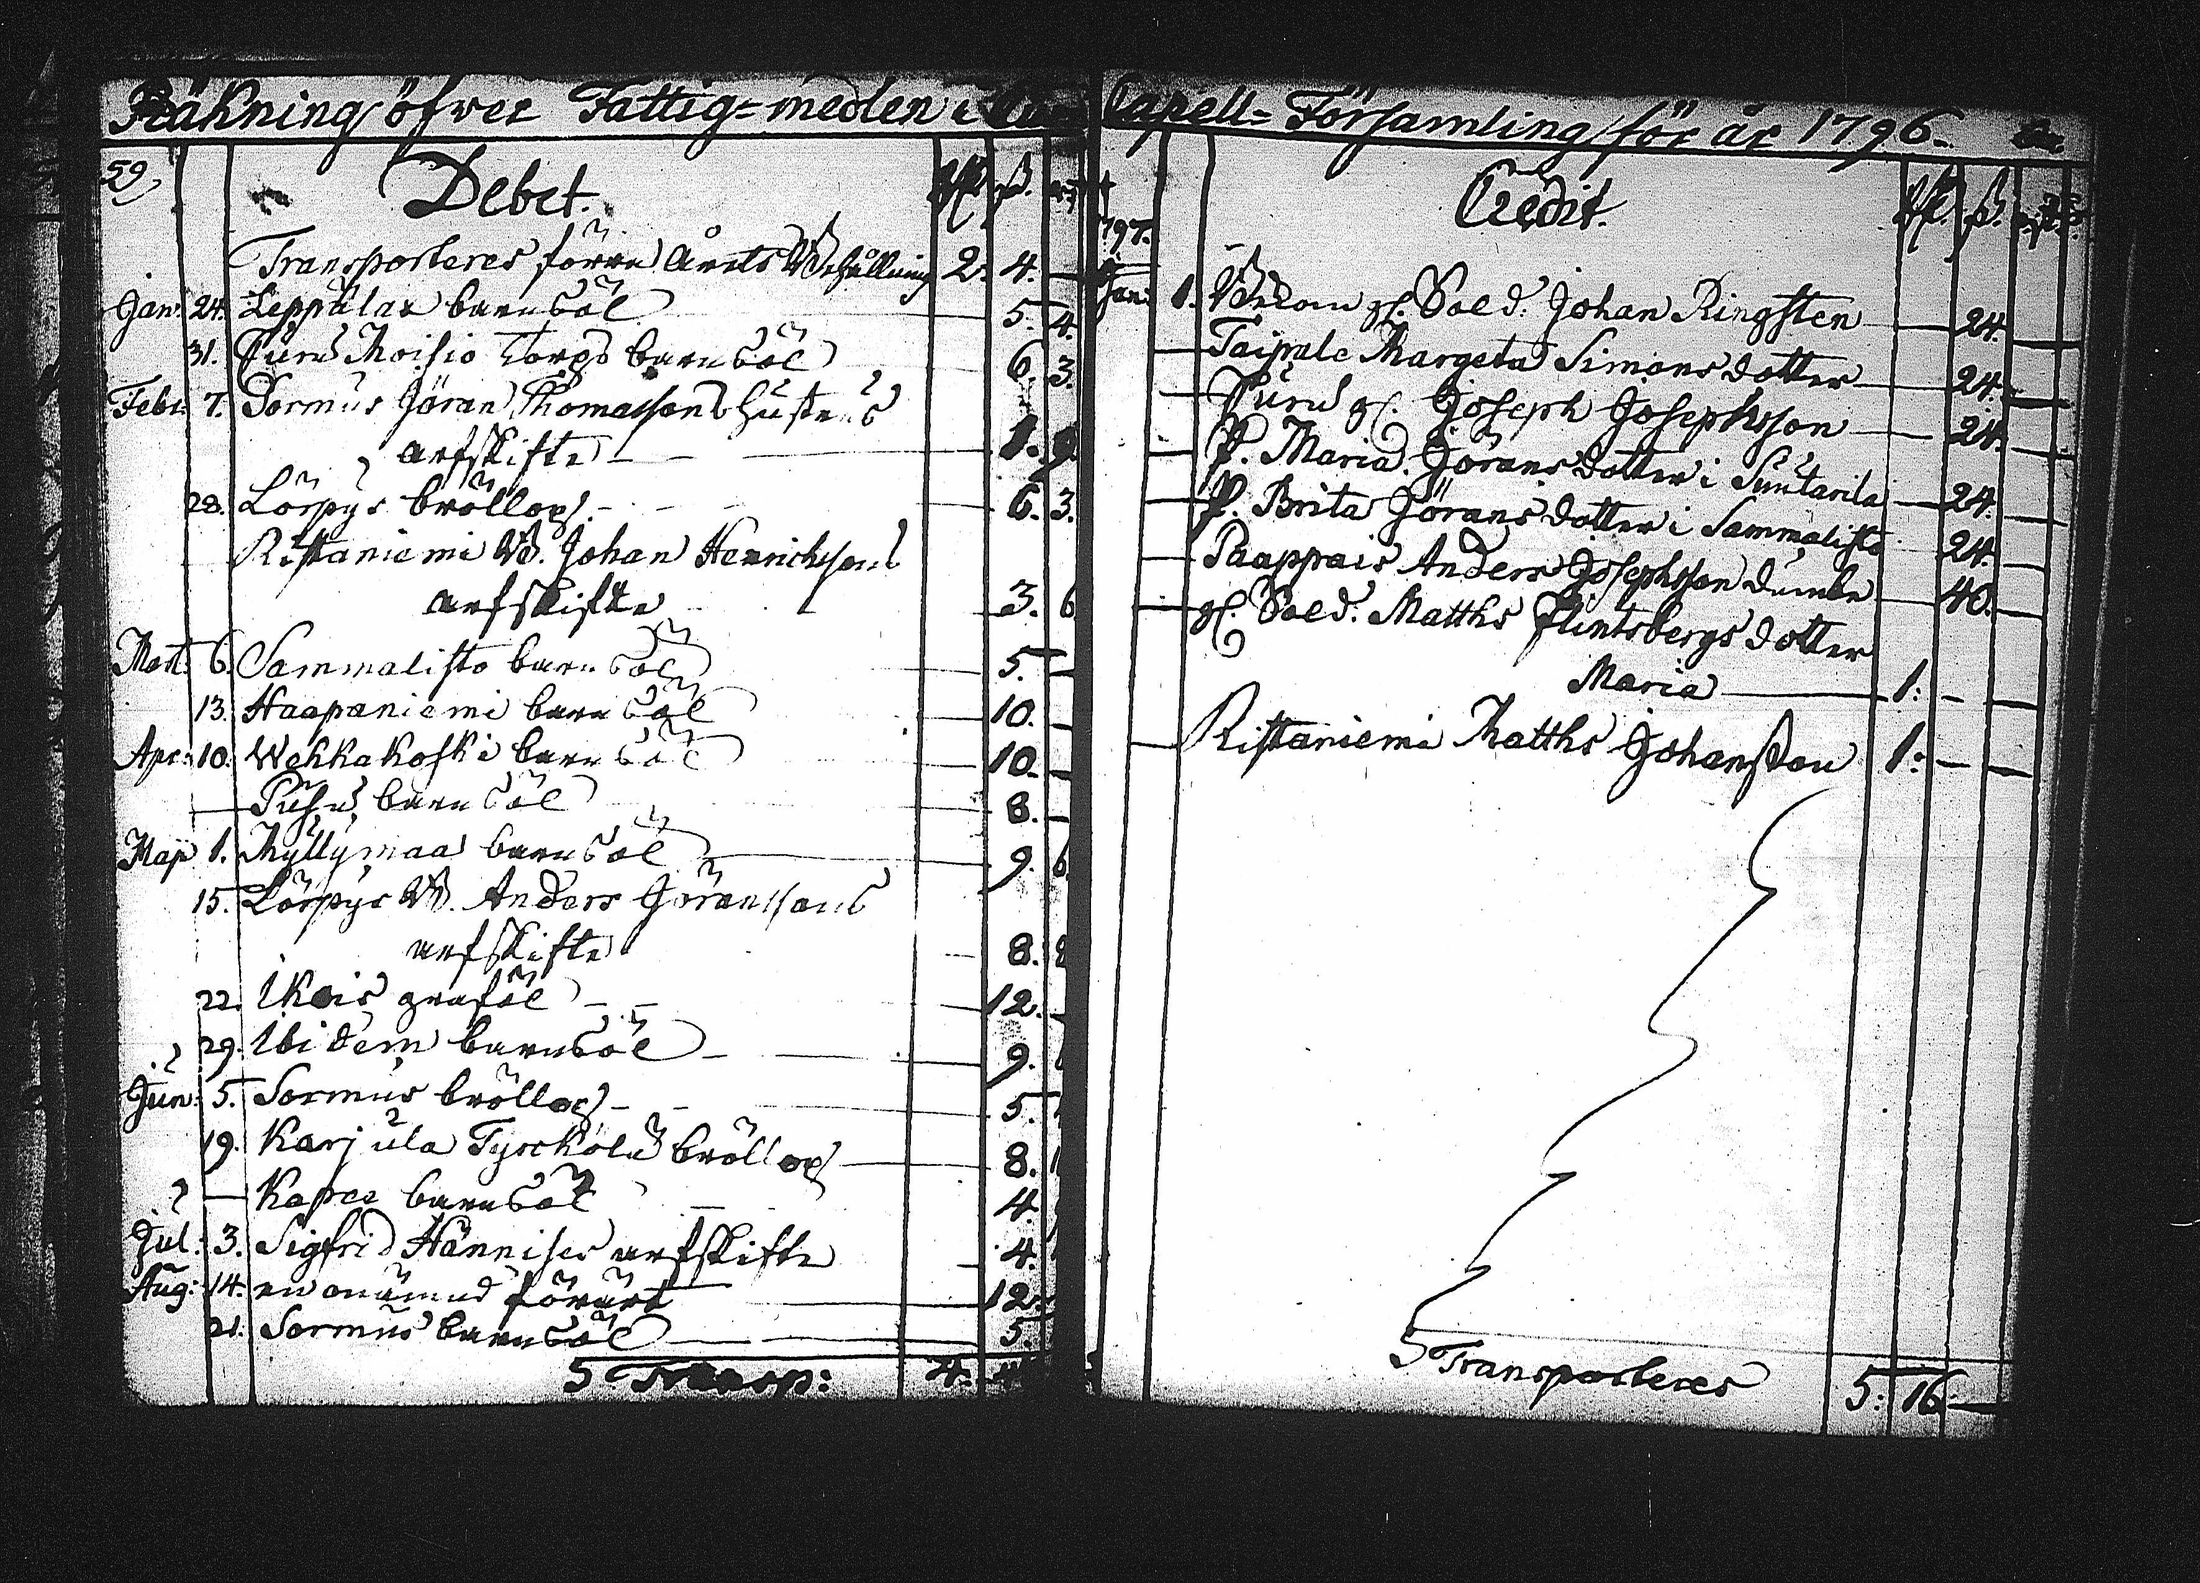 Räkning öfwer Fattig=medlen i
59
Debet.
Rdr ß. rst
Transporteres förra Årets Behållning 2. 4. —
Jan: 24. Leppälax barnsöl 5. 4.
31. Puru Moisio Torps barnsöl 6. 3.
Febr: 7. Sormus Jöran Thomassons hustrus
arfskifte — — 1. 9.
28. Lörpys bröllop. - - - 6. 3.
Ristaniemi Johan Henrichsons
arfskifte 3. 6
Mart. 6. Sammalisto barnsöl 5. —
13. Haapaniemi barnsöl 10. —
Apr: 10. Wehkakoski barnsöl 10. —
— Puhu barnsöl 8. —
Maji 1. Myllymaa barnsöl 9. 6
15. Lörpys Anders Göranssons
arfskifte 8. 8
22. Ikois graföl — — 12.
29. Ibidem barnsöl — 9.
Jun: 5. Sormus bröllop — - 5.
19. Karjula bröllop 8.
— barnsöl 4.
Jul: 3. Sigfrid Hännises arfskifte 4.
Aug: 14. en onämnd förärt 12.
21. Sormus barnsöl 5.
S Transp: 4.
Capell=Församling för år 1796.
Credit.
Rdr. ß. rst
1797.
Jan: 1. gl. Sold. Johan Ringsten — 24. —
— Taipale Margeta Simonsdotter — 24. —
— Puru gl. Joseph Josephsson — 24. —
— P. Maria Göransdotter i Suutarila — 24. —
— P. Brita Göransdotter i Sammalisto 24. —
— Paappais Anders Josephsson dumbe 40. —
— gl. Sold. Matths Flintsbergs dotter
Maria — 1: — —
— Ristaniemi Matths Johansson 1: — —
S Transporteres 5: 16. —